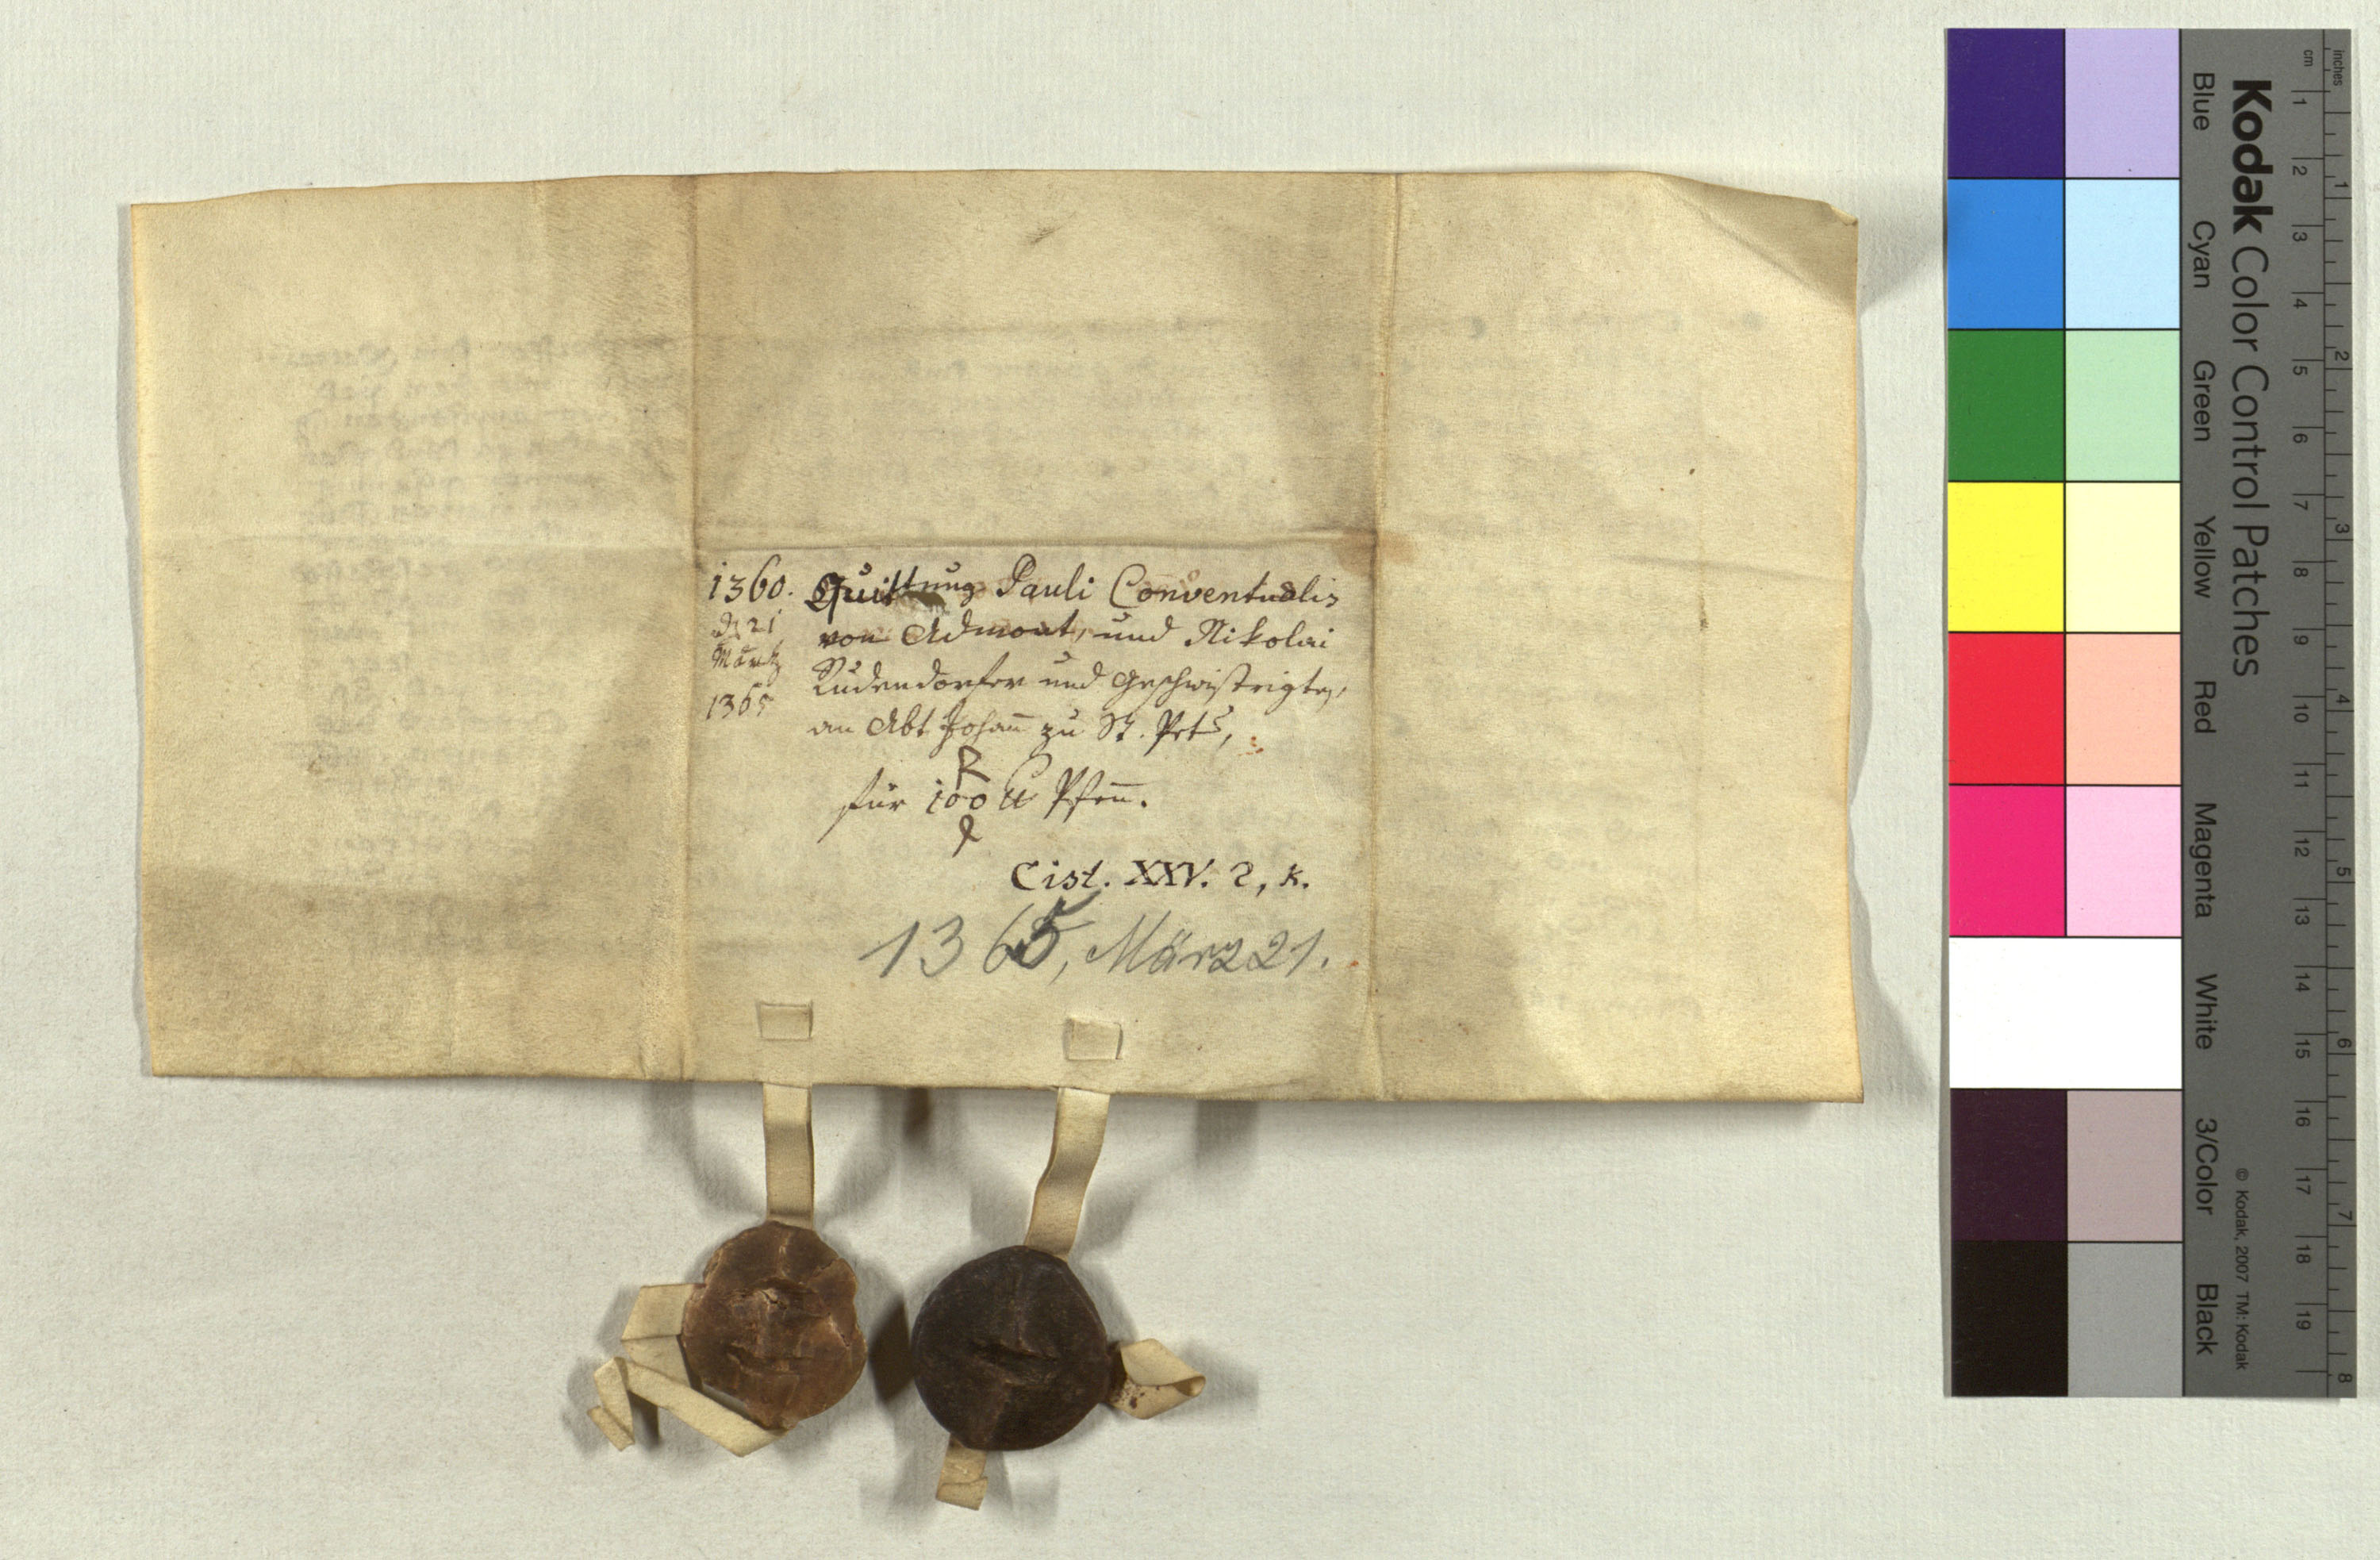 1360. Quittung Pauli Conventualis
d. 21 von Admont, und Nikolai
Märtz Rudendorfer und Geschwistrigte,
1365 an Abt Johan̄ zu St. Petr̄,
R
für 100 ℔ Pfen̄.
Cist. XXV. 2, k.
1365, März 21.
Kodak Color Control Patches
Blue Cyan Green Yellow Red Magenta White 3/Color Black
© Kodak, 2007 TM: Kodak
inches 1 2 3 4 5 6 7 8
cm 1 2 3 4 5 6 7 8 9 10 11 12 13 14 15 16 17 18 19